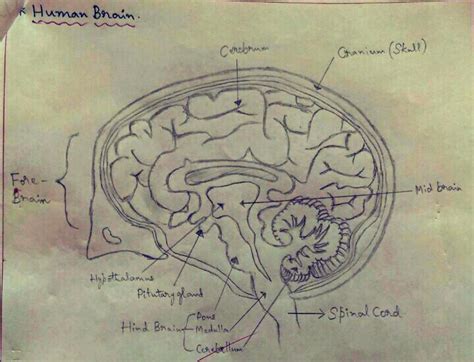 * Human Brain.
Cerebrum
Cranium (Skull)
Fore-
Brain
Mid brain
Hypothalamus
Pitutary gland
Hind Brain
Pons
Medulla
Cerebellum
Spinal Cord